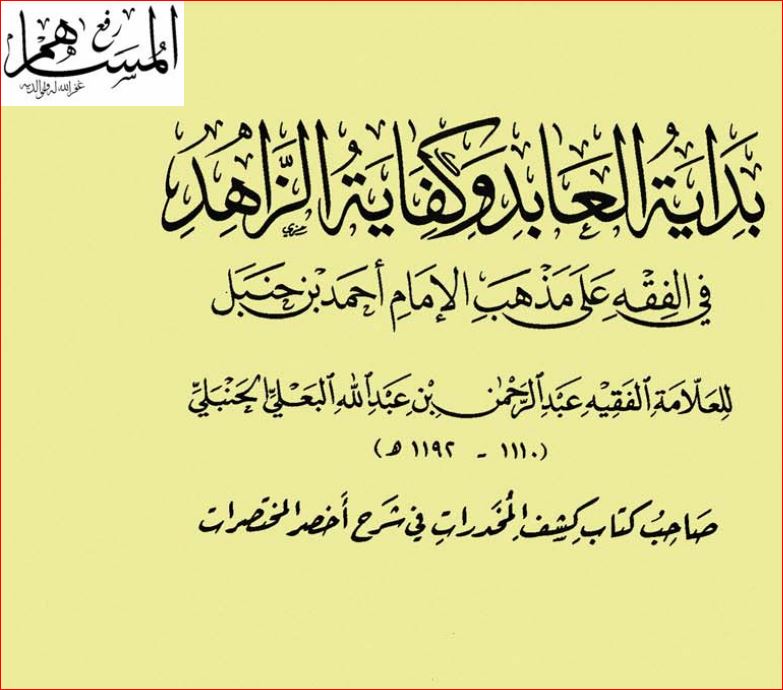 رفع
المساهم
غفر الله له ولوالديه
بَدَايَةُ العَابِدِ وَكِفَايَةُ الزَّاهِدِ
في الفِقْهِ عَلَى مَذْهَبِ الإمَامِ أحمَد بْن حَنبَل
لِلعَلّامَةِ الفَقِيْهِ عَبْدِ الرَّحْمٰن بْنِ عَبْدِ اللهِ البَعْلِيِّ الحَنْبَلِيِّ
(١١١٠ - ١١٩٢ هـ)
صَاحِبُ كتَاب كَشِف المُخَدَراتِ في شَرح أَخصر المختصرات